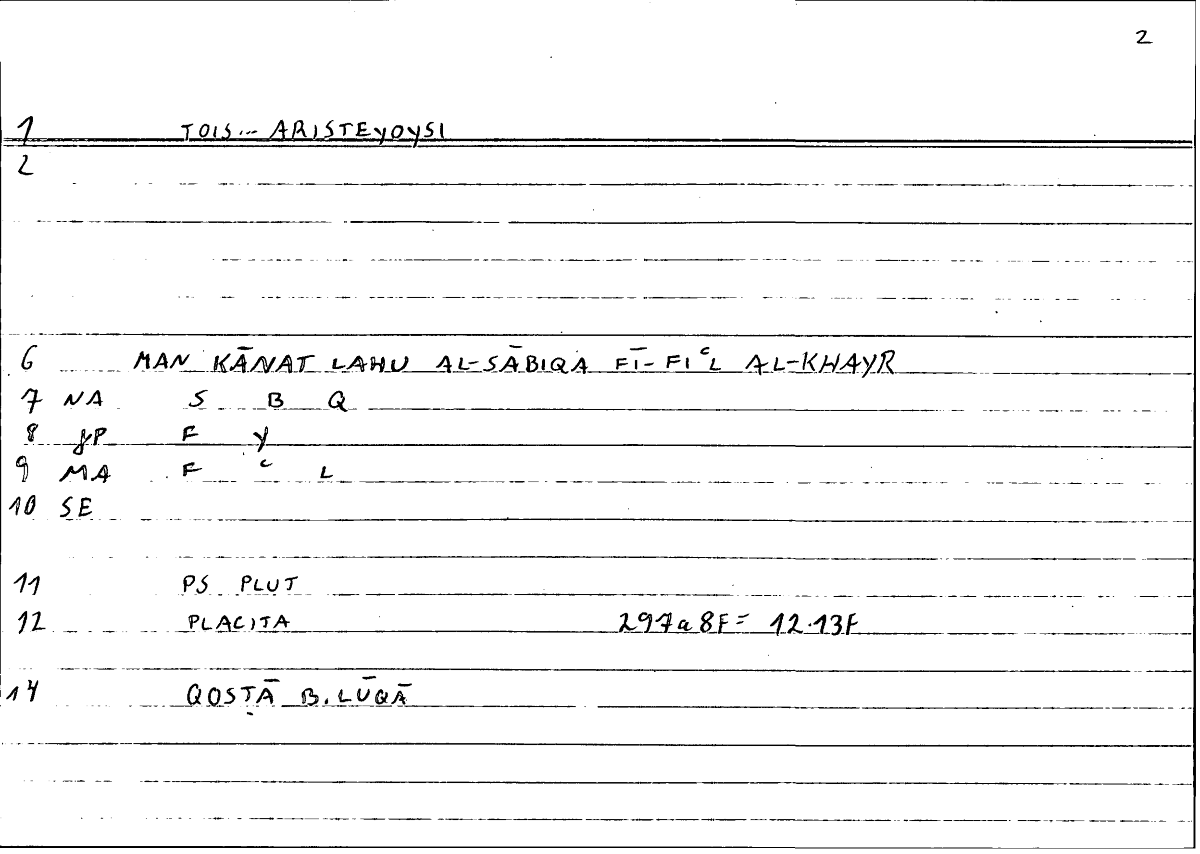 2
1 TOIS... ARISTEYOYSI
2
6 MAN KĀNAT LAHU AL-SĀBIQA FĪ-FIᶜL AL-KHAYR
7 NA S B Q
8 F Y
9 MA F ᶜ L
10 SE
11 PS PLUT
12 PLACITA 297a8F= 12.13F
14 QOSṬĀ B. LŪQĀ